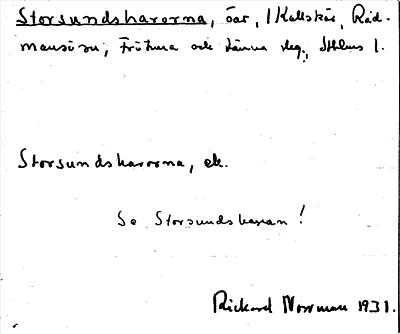 Storsundsharorna, öar, / Kallskär, Råd-
mansö sn, Frötuna och Länna skg., Sthlms l.
Storsundsharorna, ek.
Se Storsundsharan!
Rickard Norrman 1931.